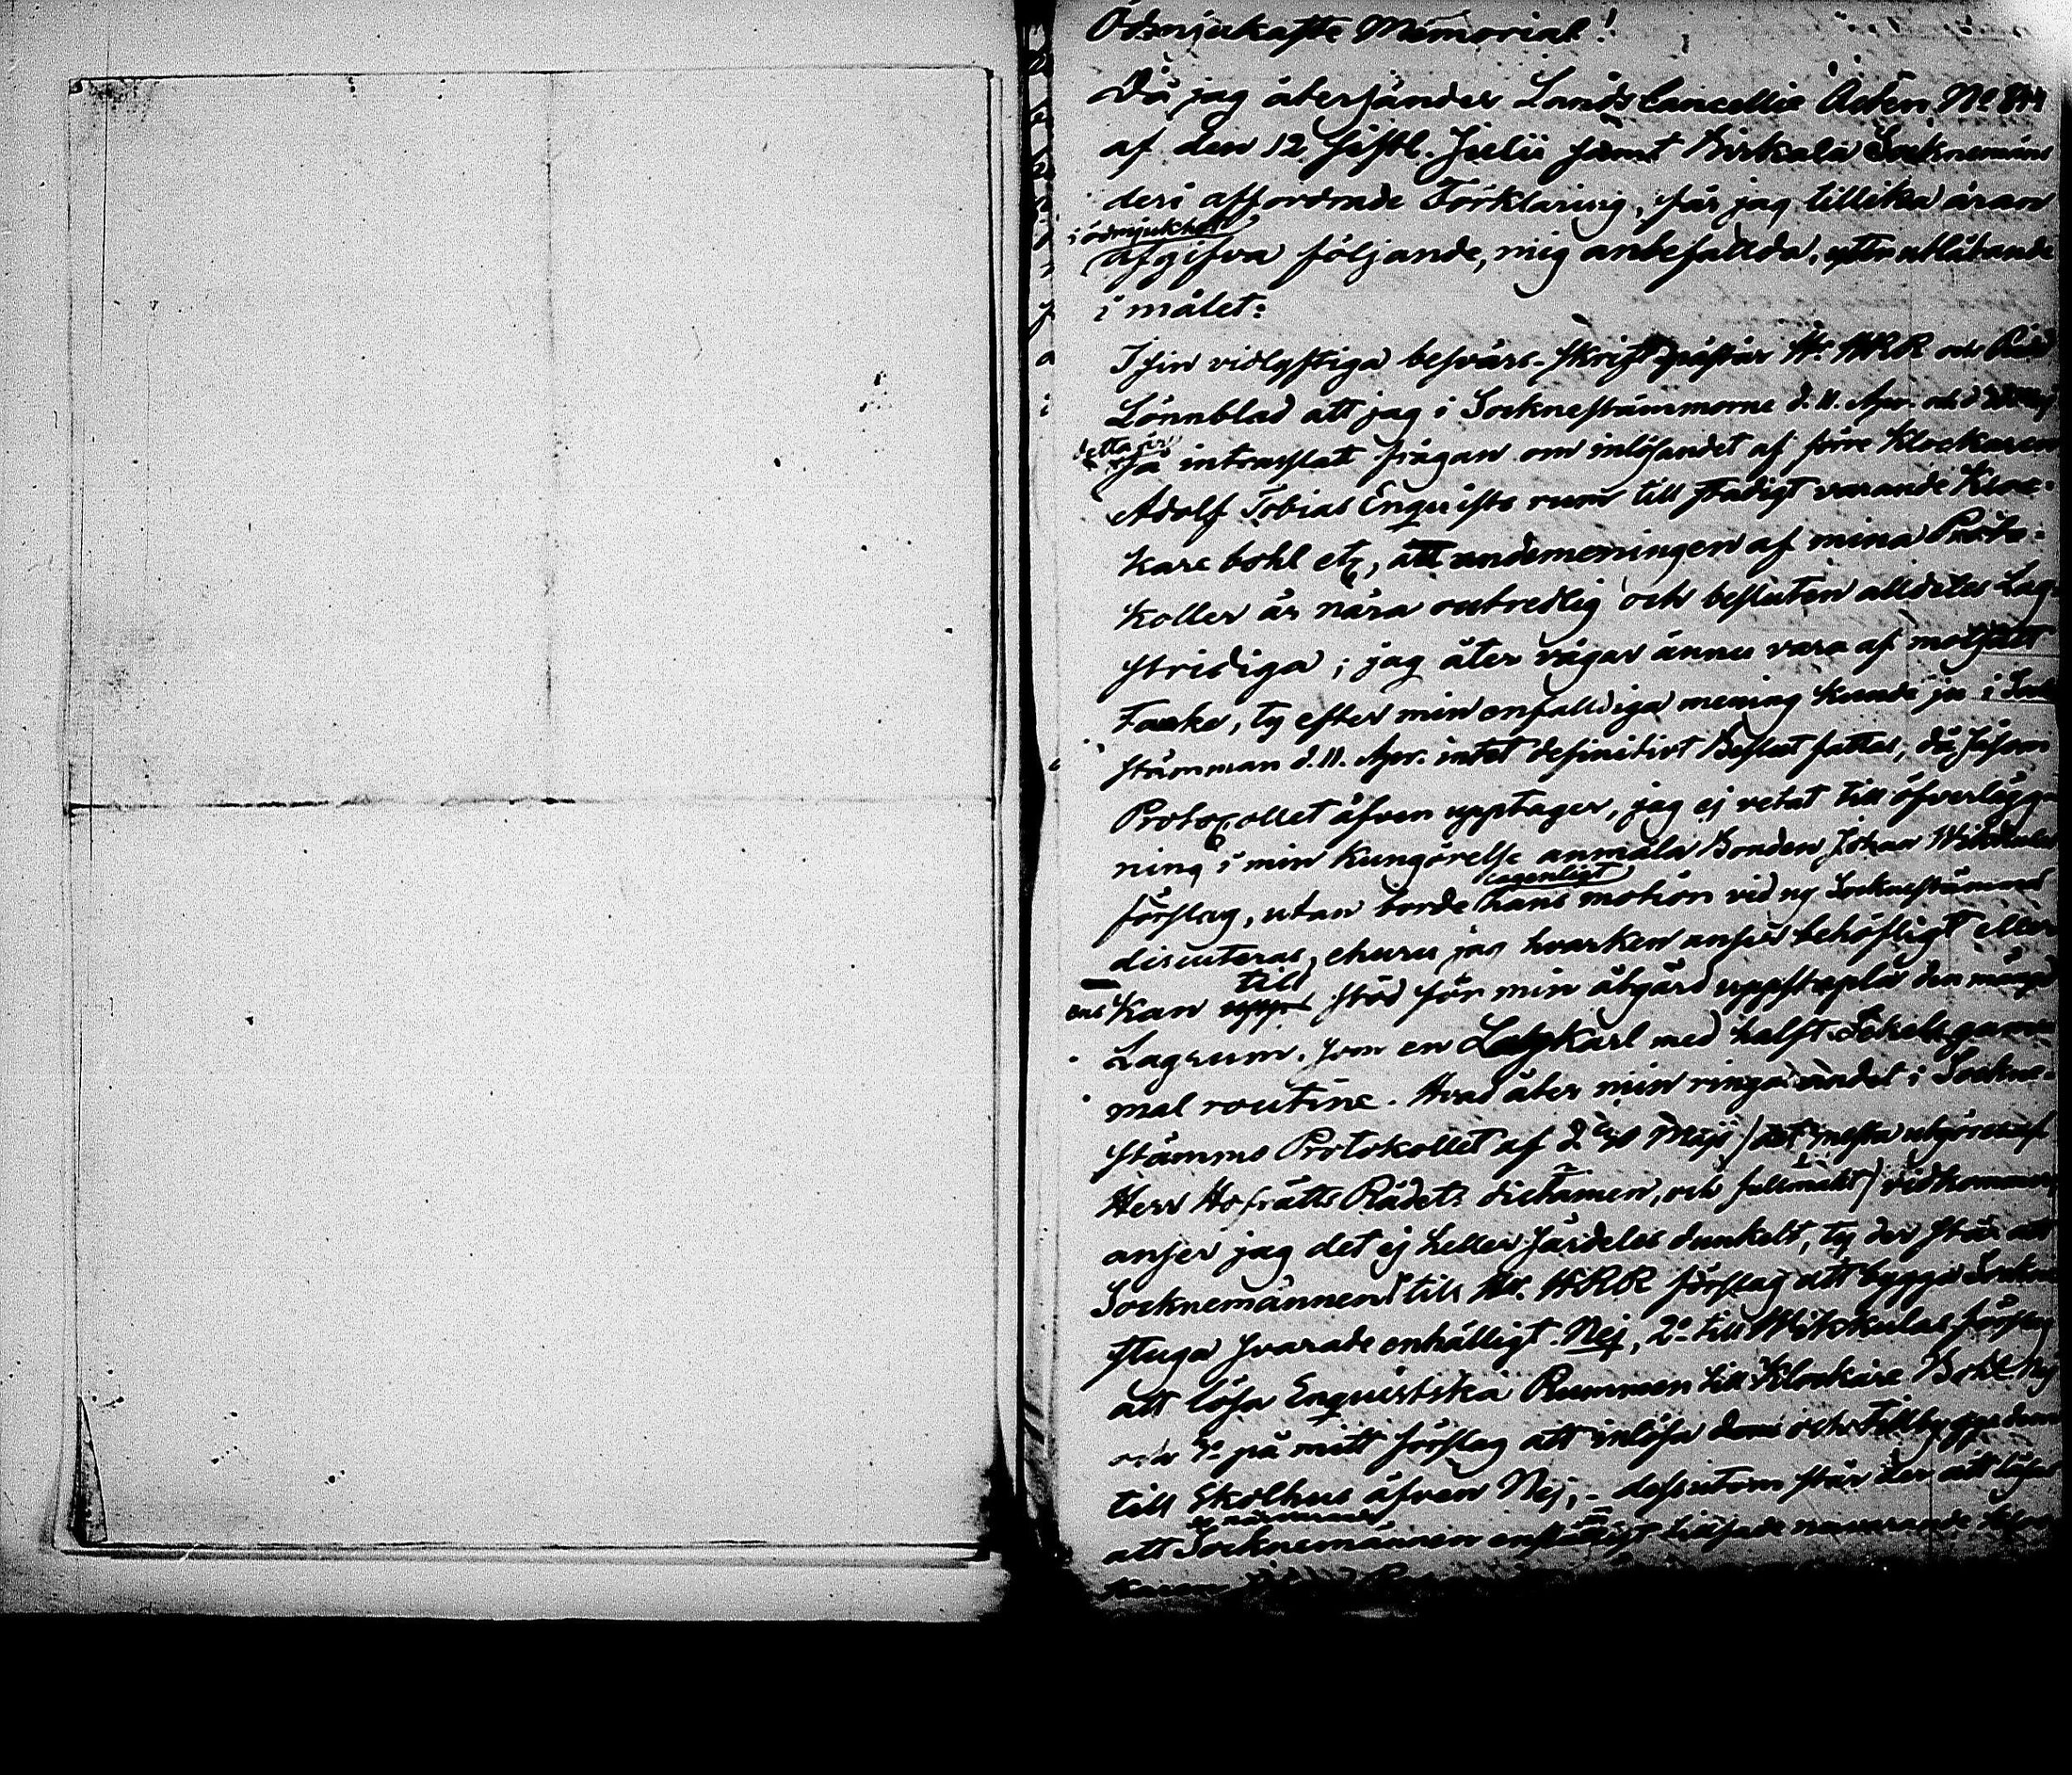 Ödmjukaste Memorial!
Då jag återsänder Lands Cancellie Acten, No 844
af den 12 sistl. Julii jämt Birkala Socknemäns
deri affordrade Förklaring, får jag tillika äran
i ödmjukhet
afgifva följande, mig anbefallda, utlåtande
i målet:
I sin vidlyftiga besvärs-skrift påstår Hr HRR och Ridd
Lönnblad att jag i Socknestämmorne d. 11. Apr. och
detta år
så intrasslat frågan om inlösandet af förre Klockaren
Adolf Tobias Enquists rum till stadigt varande Kloc-
kare bohl etc, att andemeningen af mina Proto-
koller är nära outredlig och besluten alldeles Lag-
stridiga; jag åter vågar ännu vara af motsatt
Tanke, ty efter min enfaldiga mening kunde ju i Sock
stämman d. 11. Apr. intet definitivt Beslut fattas, då såsom
Protocollet äfven upptager, jag ej vetat till öfverlägg-
ning i min Kungörelse anmäla Bonden Johan Witikala
lagenligt
förslag, utan borde hans motion vid ny Socknestämma
discuteras, churu jag hvarken anser behöfligt eller
ens Kan till stöd för min åtgärd uppstapla den mängd
Lagrum, som en Lagkarl med halft Sekels gam-
mal routine. Hvad åter min ringa andel i Sockne-
stämmo Protokollet af d. Maji (det mesta utgöres af
Herr Hofrätts Rådets dictamen, och fullmakt) vidkommer
anser jag det ej heller särdeles dunkelt, ty der står att
Socknemännen till Hr. HRR förslag att bygga Sockne
stuga svarade enhälligt Nej, 2o till Witikalas förslag
att lösa Enquistska Rummen till Klockare Bohl Nej
och 3o på mitt förslag att inlösa dem och tillbygga dem
till Skolhus äfven Nej, - dessutom står der att läsa
att Socknemännen enhälligt tillsade nuvarande Kloc